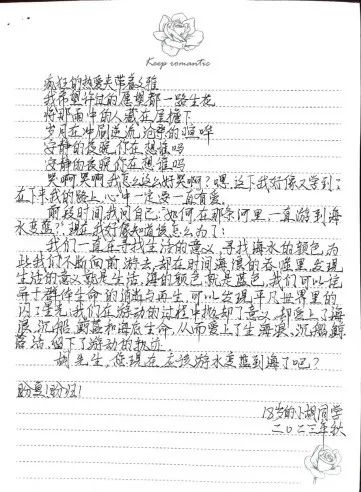 Keep romantic
疯狂的热爱夹带着文雅
我希望许过的愿望都一路生花
将那雨中的人藏在屋檐下
岁月在冲刷逆流 沧桑的喧哗
安静的夜晚你在想谁吗
安静的夜晚你在想谁吗
哭啊哭啊我怎么这么好哭啊？嗯,这下我好像又学到了
在下本我的路上,心中一定要一直有爱。
前段时间我问自己:"如何在那条河里一直游到海
水变蓝?"现在我好像知道该怎么办了:
我们一直在寻找生活的意义,寻找海水的颜色,为
此我们不断向前游去,却在时间海浪的吞噬里,发现
生活的意义就是生活,海的颜色就是蓝色,我们可以
于群体生命的消散与再生,可以发现平凡世界里的
闪了生光,我们在游动的过程中抛却了意义,却爱上了海
浪,沉船,鲸落和海底生命,从而爱上了生海浪,沉船,鲸
落,留下了游动的轨迹.
胡先生,您现在应该游水变蓝到海了吧?
盼复!盼归!
18岁的小胡同学
二〇二三年秋